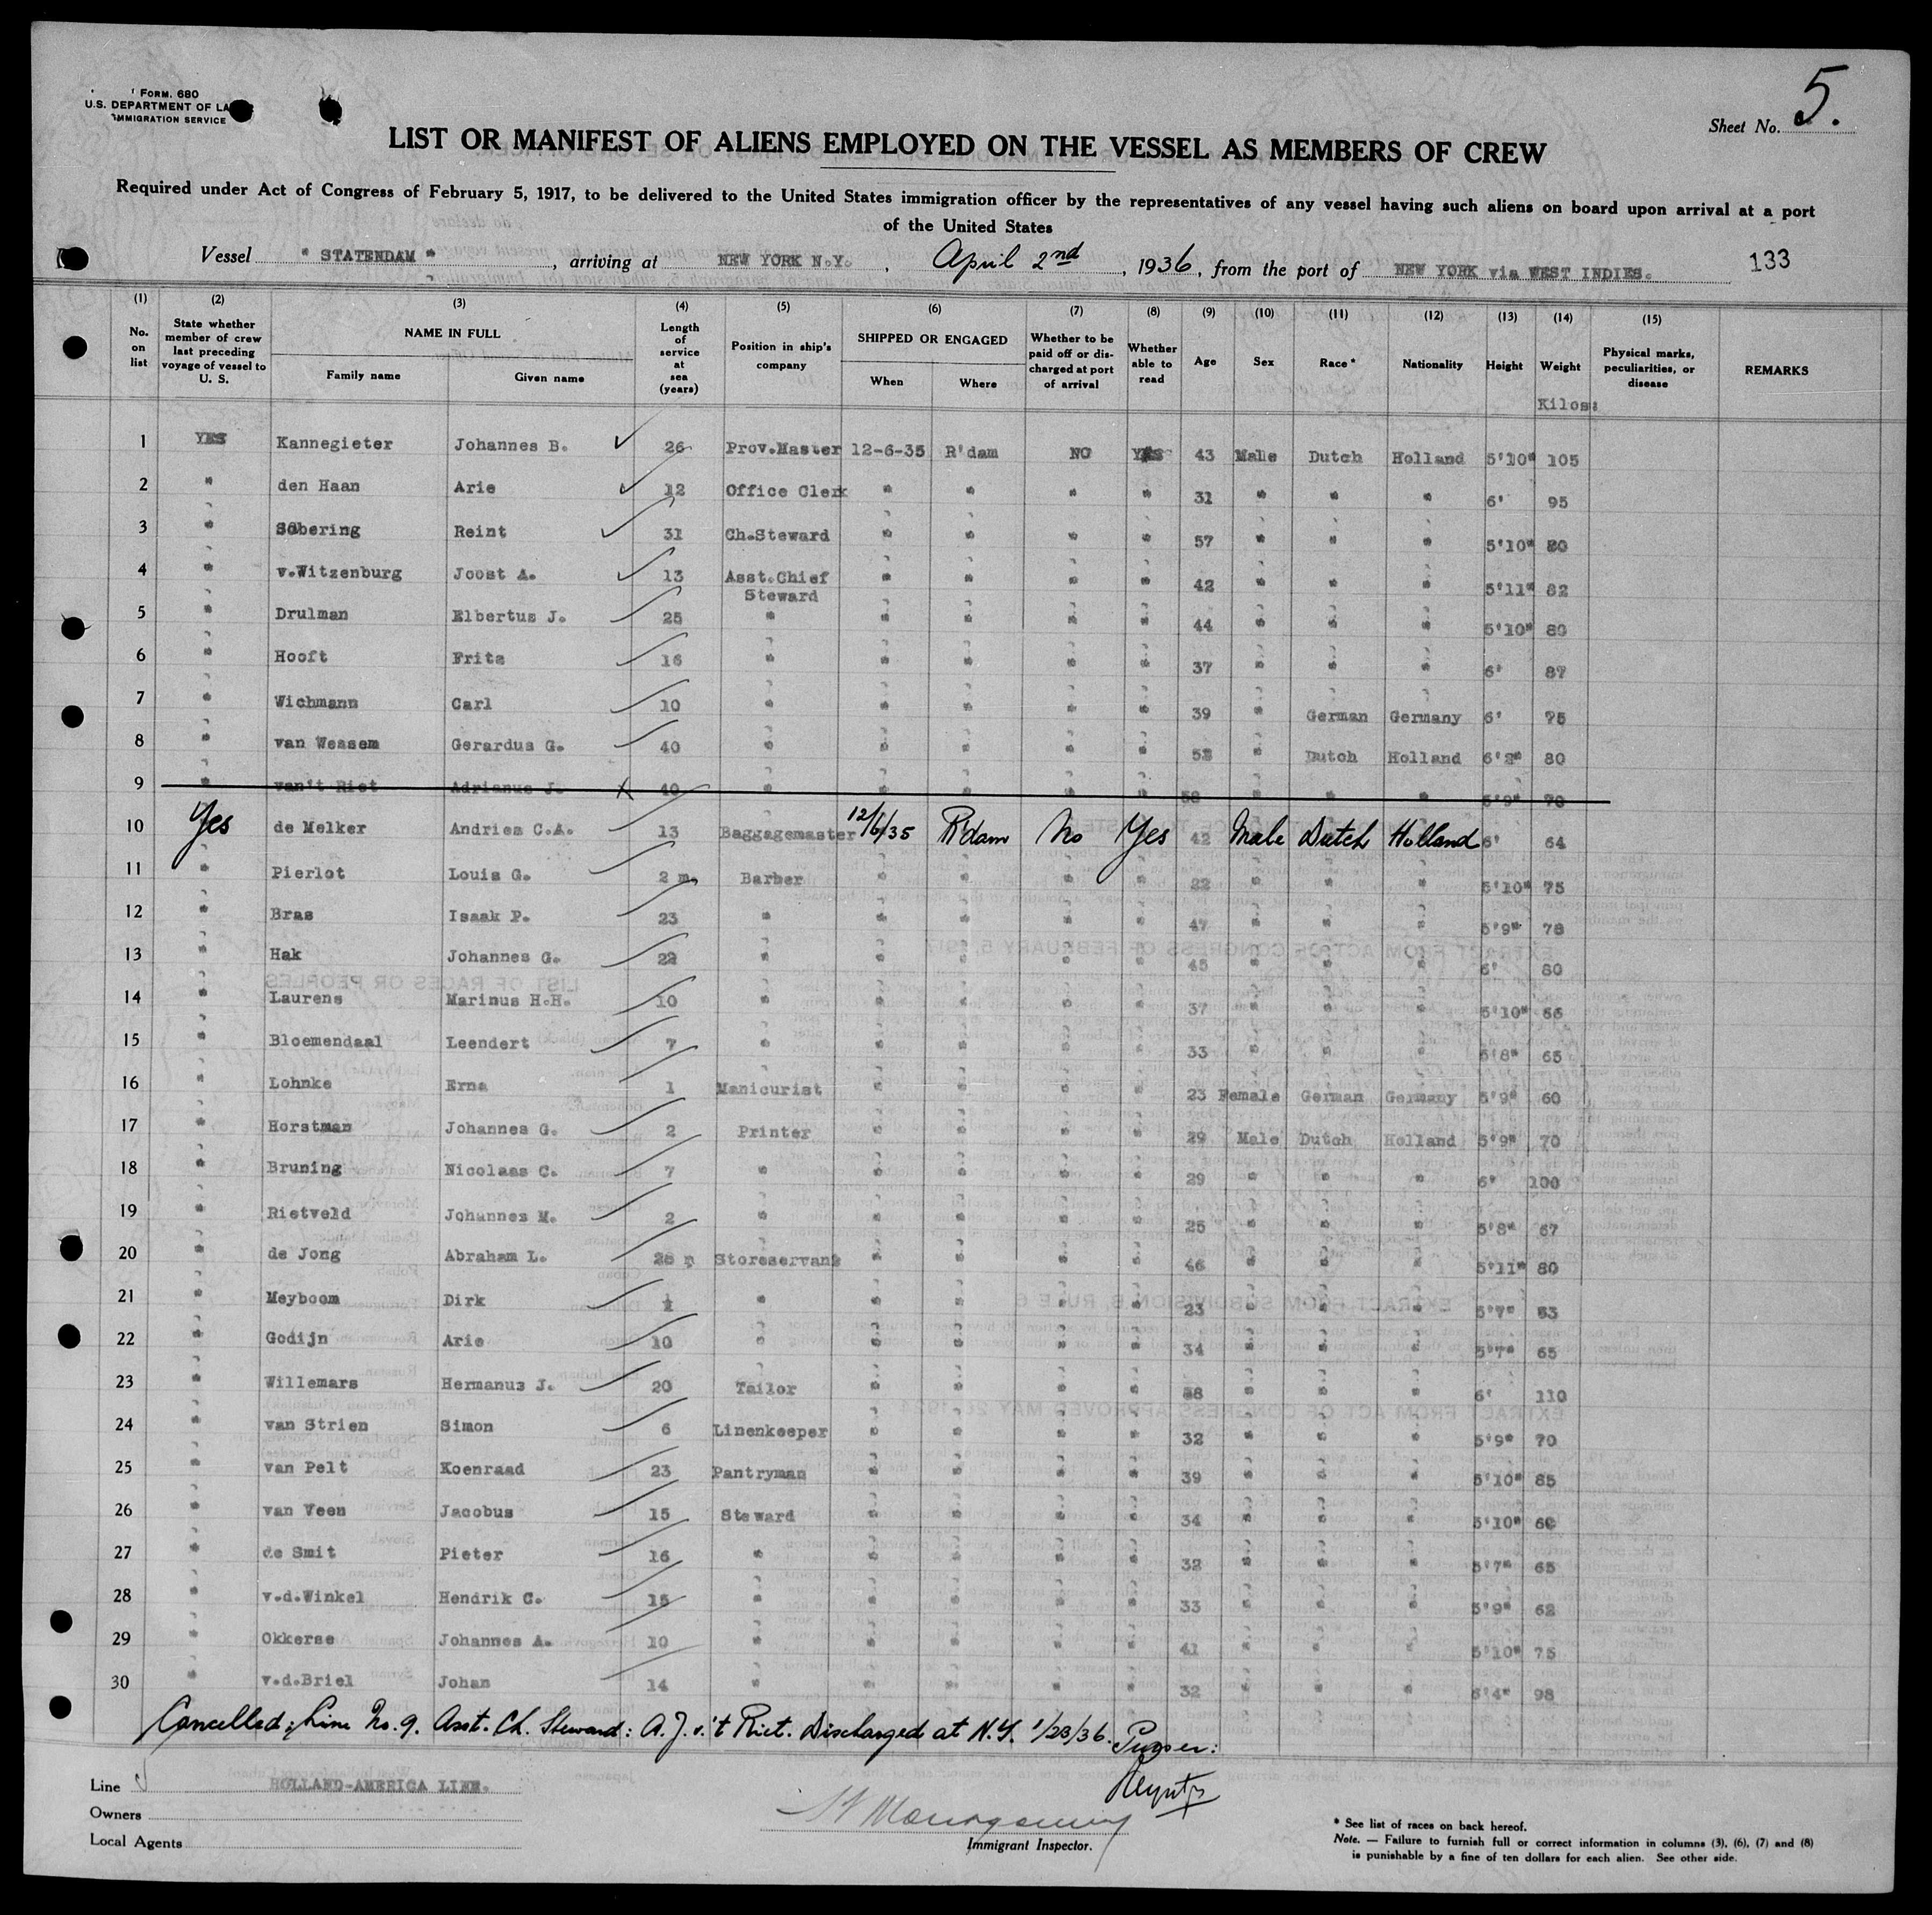 FORM 680
U.S. DEPARTMENT OF LA
IMMIGRATION SERVICE
Sheet No. 5.
LIST OR MANIFEST OF ALIENS EMPLOYED ON THE VESSEL AS MEMBERS OF CREW
Required under Act of Congress of February 5, 1917, to be delivered to the United States immigration officer by the representatives of any vessel having such aliens on board upon arrival at a port
of the United States
Vessel " STATENDAM " , arriving at NEW YORK N.Y. , April 2nd , 1936, from the port of NEW YORK via WEST INDIES. 133
(1) (2) (3) (4) (5) (6) (7) (8) (9) (10) (11) (12) (13) (14) (15)
No. on list State whether member of crew last preceding voyage of vessel to U. S. NAME IN FULL Family name Given name Length of service at sea (years) Position in ship's company SHIPPED OR ENGAGED When Where Whether to be paid off or discharged at port of arrival Whether able to read Age Sex Race * Nationality Height Weight Physical marks, peculiarities, or disease REMARKS
Kilos:
1 YES Kannegieter Johannes B. 26 Prov.Master 12-6-35 R'dam NO YES 43 Male Dutch Holland 5'10" 105
2 " den Haan Arie 12 Office Clerk " " " " 31 " " " 6' 95
3 " Sebering Reint 31 Ch.Steward " " " " 57 " " " 5'10" 80
4 " v.Witzenburg Joost A. 13 Asst.Chief Steward " " " " 42 " " " 5'11" 82
5 " Drulman Elbertus J. 25 " " " " " 44 " " " 5'10" 80
6 " Hooft Frits 16 " " " " " 37 " " " 6' 87
7 " Wichmann Carl 10 " " " " " 39 " German Germany 6' 75
8 " van Wessem Gerardus G. 40 " " " " " 53 " Dutch Holland 6'2" 80
9 " van't Riet Adrianus J. 40 " " " " " 58 " " " 5'9" 70
10 Yes de Melker Andries C.A. 13 Baggagemaster 12/6/35 R'dam No Yes 42 Male Dutch Holland 6' 64
11 " Pierlot Louis G. 2 m. Barber " " " " 22 " " " 5'10" 75
12 " Bras Isaak P. 23 " " " " " 47 " " " 5'9" 78
13 " Hak Johannes G. 22 " " " " " 45 " " " 6' 80
14 " Laurens Marinus H.H. 10 " " " " " 37 " " " 5'10" 66
15 " Bloemendaal Leendert 7 " " " " " 33 " " " 5'8" 65
16 " Lohnke Erna 1 Manicurist " " " " 23 Female German Germany 5'9" 60
17 " Horstman Johannes G. 2 Printer " " " " 29 Male Dutch Holland 5'9" 70
18 " Bruning Nicolaas C. 7 " " " " " 29 " " " 6' 100
19 " Rietveld Johannes M. 2 " " " " " 25 " " " 5'8" 67
20 " de Jong Abraham L. Storeservant " " " " 46 " " " 5'11" 80
21 " Meyboom Dirk ½ " " " " " 23 " " " 5'7" 53
22 " Godijn Arie 10 " " " " " 34 " " " 5'7" 65
23 " Willemars Hermanus J. 20 Tailor " " " " " " " 6' 110
24 " van Strien Simon 6 Linenkeeper " " " " 32 " " " 5'9" 70
25 " van Pelt Koenraad 23 Pantryman " " " " 39 " " " 5'10" 85
26 " van Veen Jacobus 15 Steward " " " " 34 " " " 5'10" 60
27 " de Smit Pieter 16 " " " " " 32 " " " 5'7" 65
28 " v.d.Winkel Hendrik C. 15 " " " " " 33 " " " 5'9" 62
29 " Okkerse Johannes A. 10 " " " " " 41 " " " 5'10" 75
30 " v.d.Briel Johan 14 " " " " " 32 " " " 6'4" 98
Cancelled; Line No. 9. Asst. Ch. Steward: A. J. v. 't Riet. Discharged at N.Y. 1/23/36. Purser:
Line HOLLAND-AMERICA LINE.
Owners
Local Agents
Immigrant Inspector.
* See list of races on back hereof.
Note. — Failure to furnish full or correct information in columns (3), (6), (7) and (8)
is punishable by a fine of ten dollars for each alien. See other side.